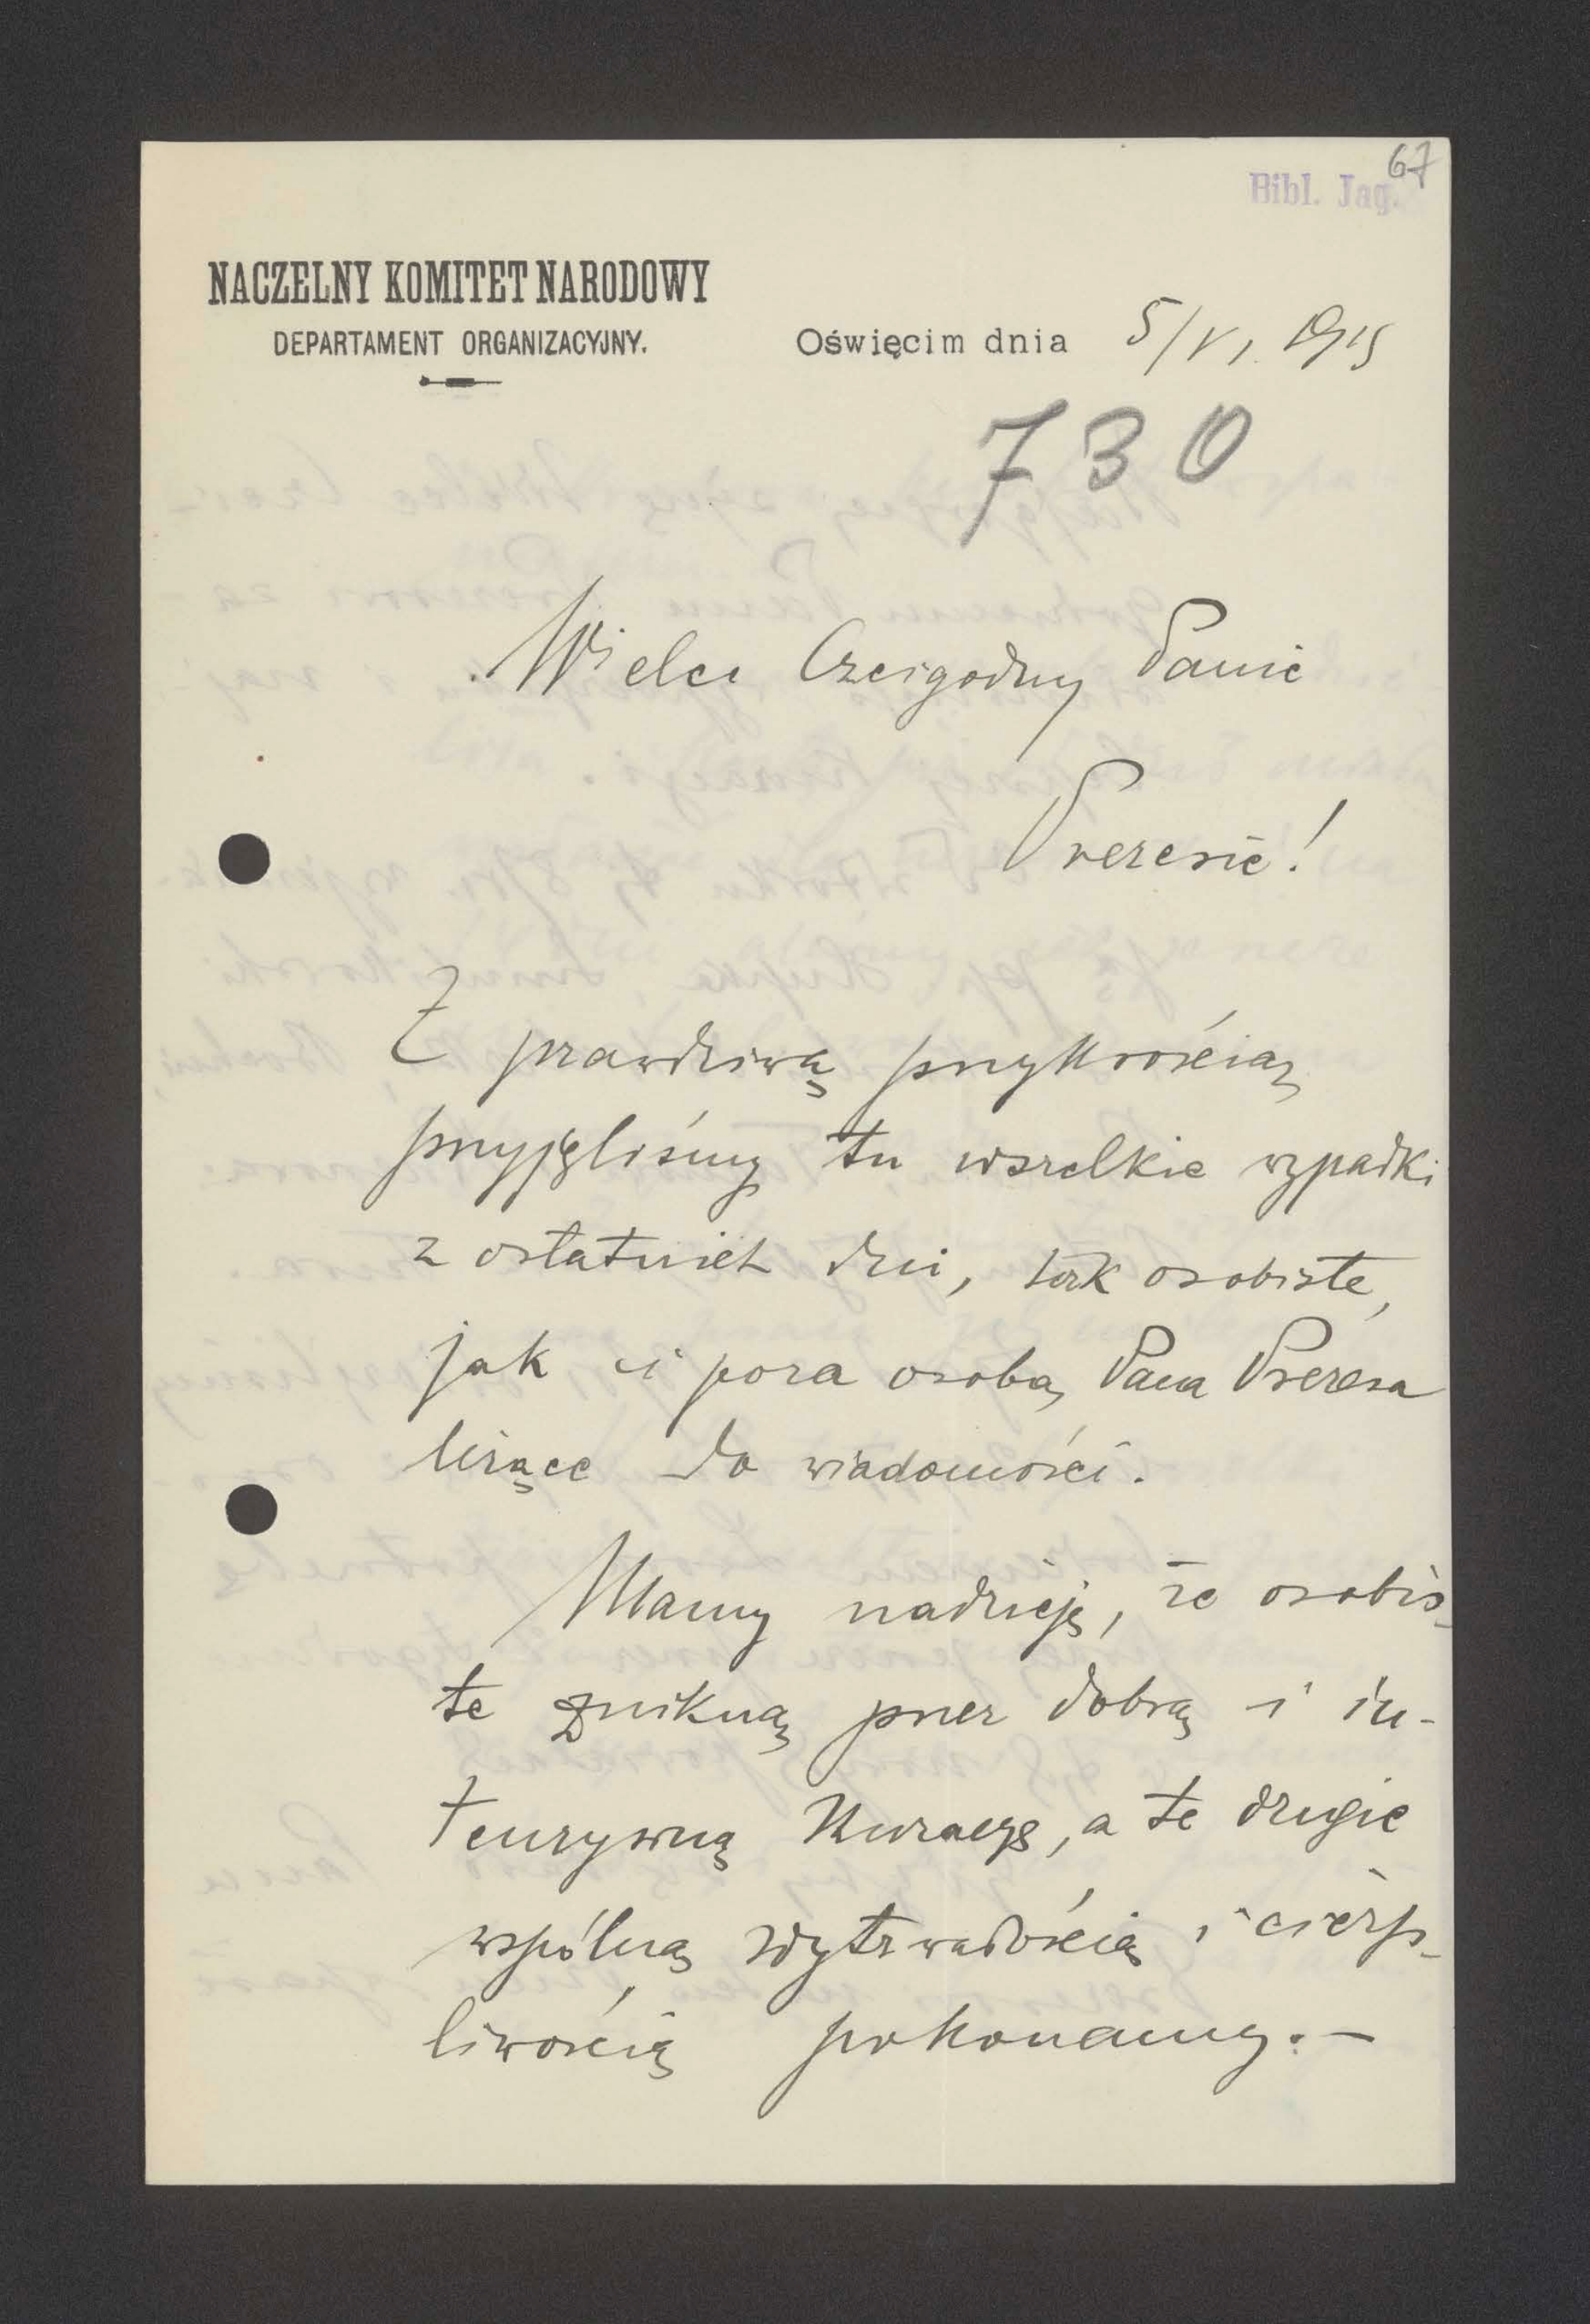 67
Bibl. Jag.
NACZELNY KOMITET NARODOWY
DEPARTAMENT ORGANIZACYJNY.
Oświęcim dnia 5/VI. 1915
730
Wielce Czcigodny Panie
Prezesie!
Z prawdziwą przykrością
przyjęliśmy tu wszelkie wypadki
z ostatnich dni, tak osobiste,
jak i poza osobą Pana Prezesa
leżące do wiadomości.
Mamy nadzieję, że osobis-
te znikną przez dobrą i in-
tenzywną kuracyę, a te drugie
wspólną wytrwałością i cierp-
liwością pokonamy.—